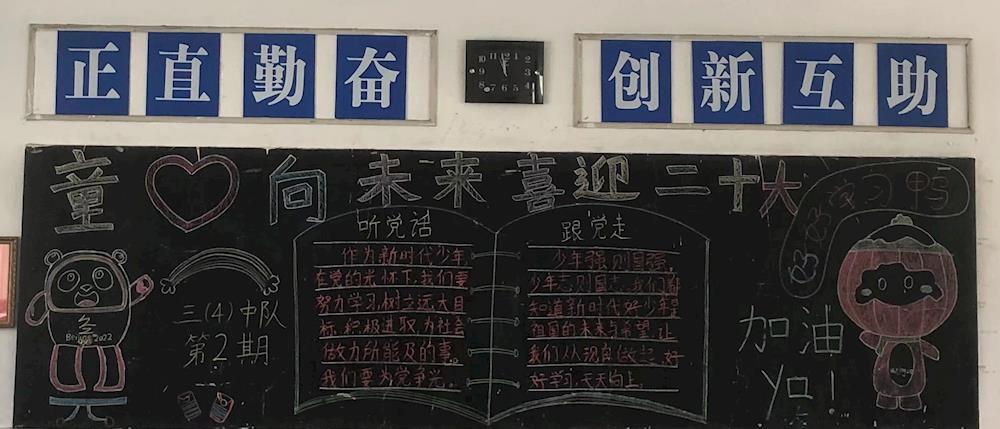 正直勤奋
创新互助
童 向未来喜迎二十大
好好学习鸭
听党话
作为新时代少年,
在党的光怀下,我们要
努力学习树立远大目
标,积极进取,为社会
做力所能及的事。
我们要为党争光。
跟党走
少年强,则国强,
少年志则国志,我们都
知道新时代好少年是
祖国的未来与希望,让
我们从现在做起,好
好学习,天天向上.
三(4)中队
第2期
冬
Beijing 2022
加油
ya!